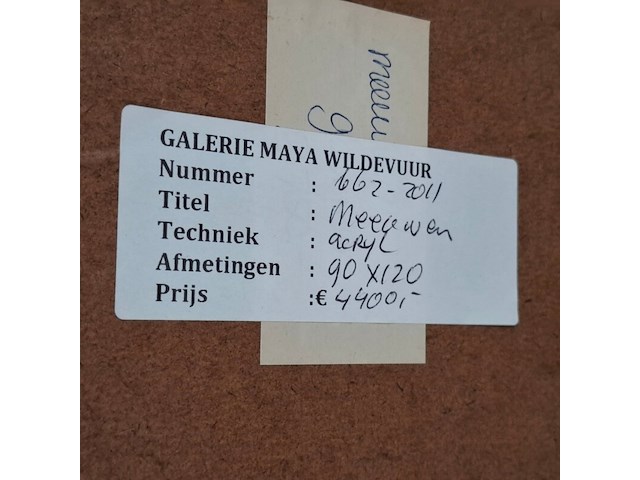 GALERIE MAYA WILDEVUUR
Nummer : 662-2011
Titel : Meeuwen
Techniek : acryl
Afmetingen : 90 x 120
Prijs :€ 4400,-
meeuw
9